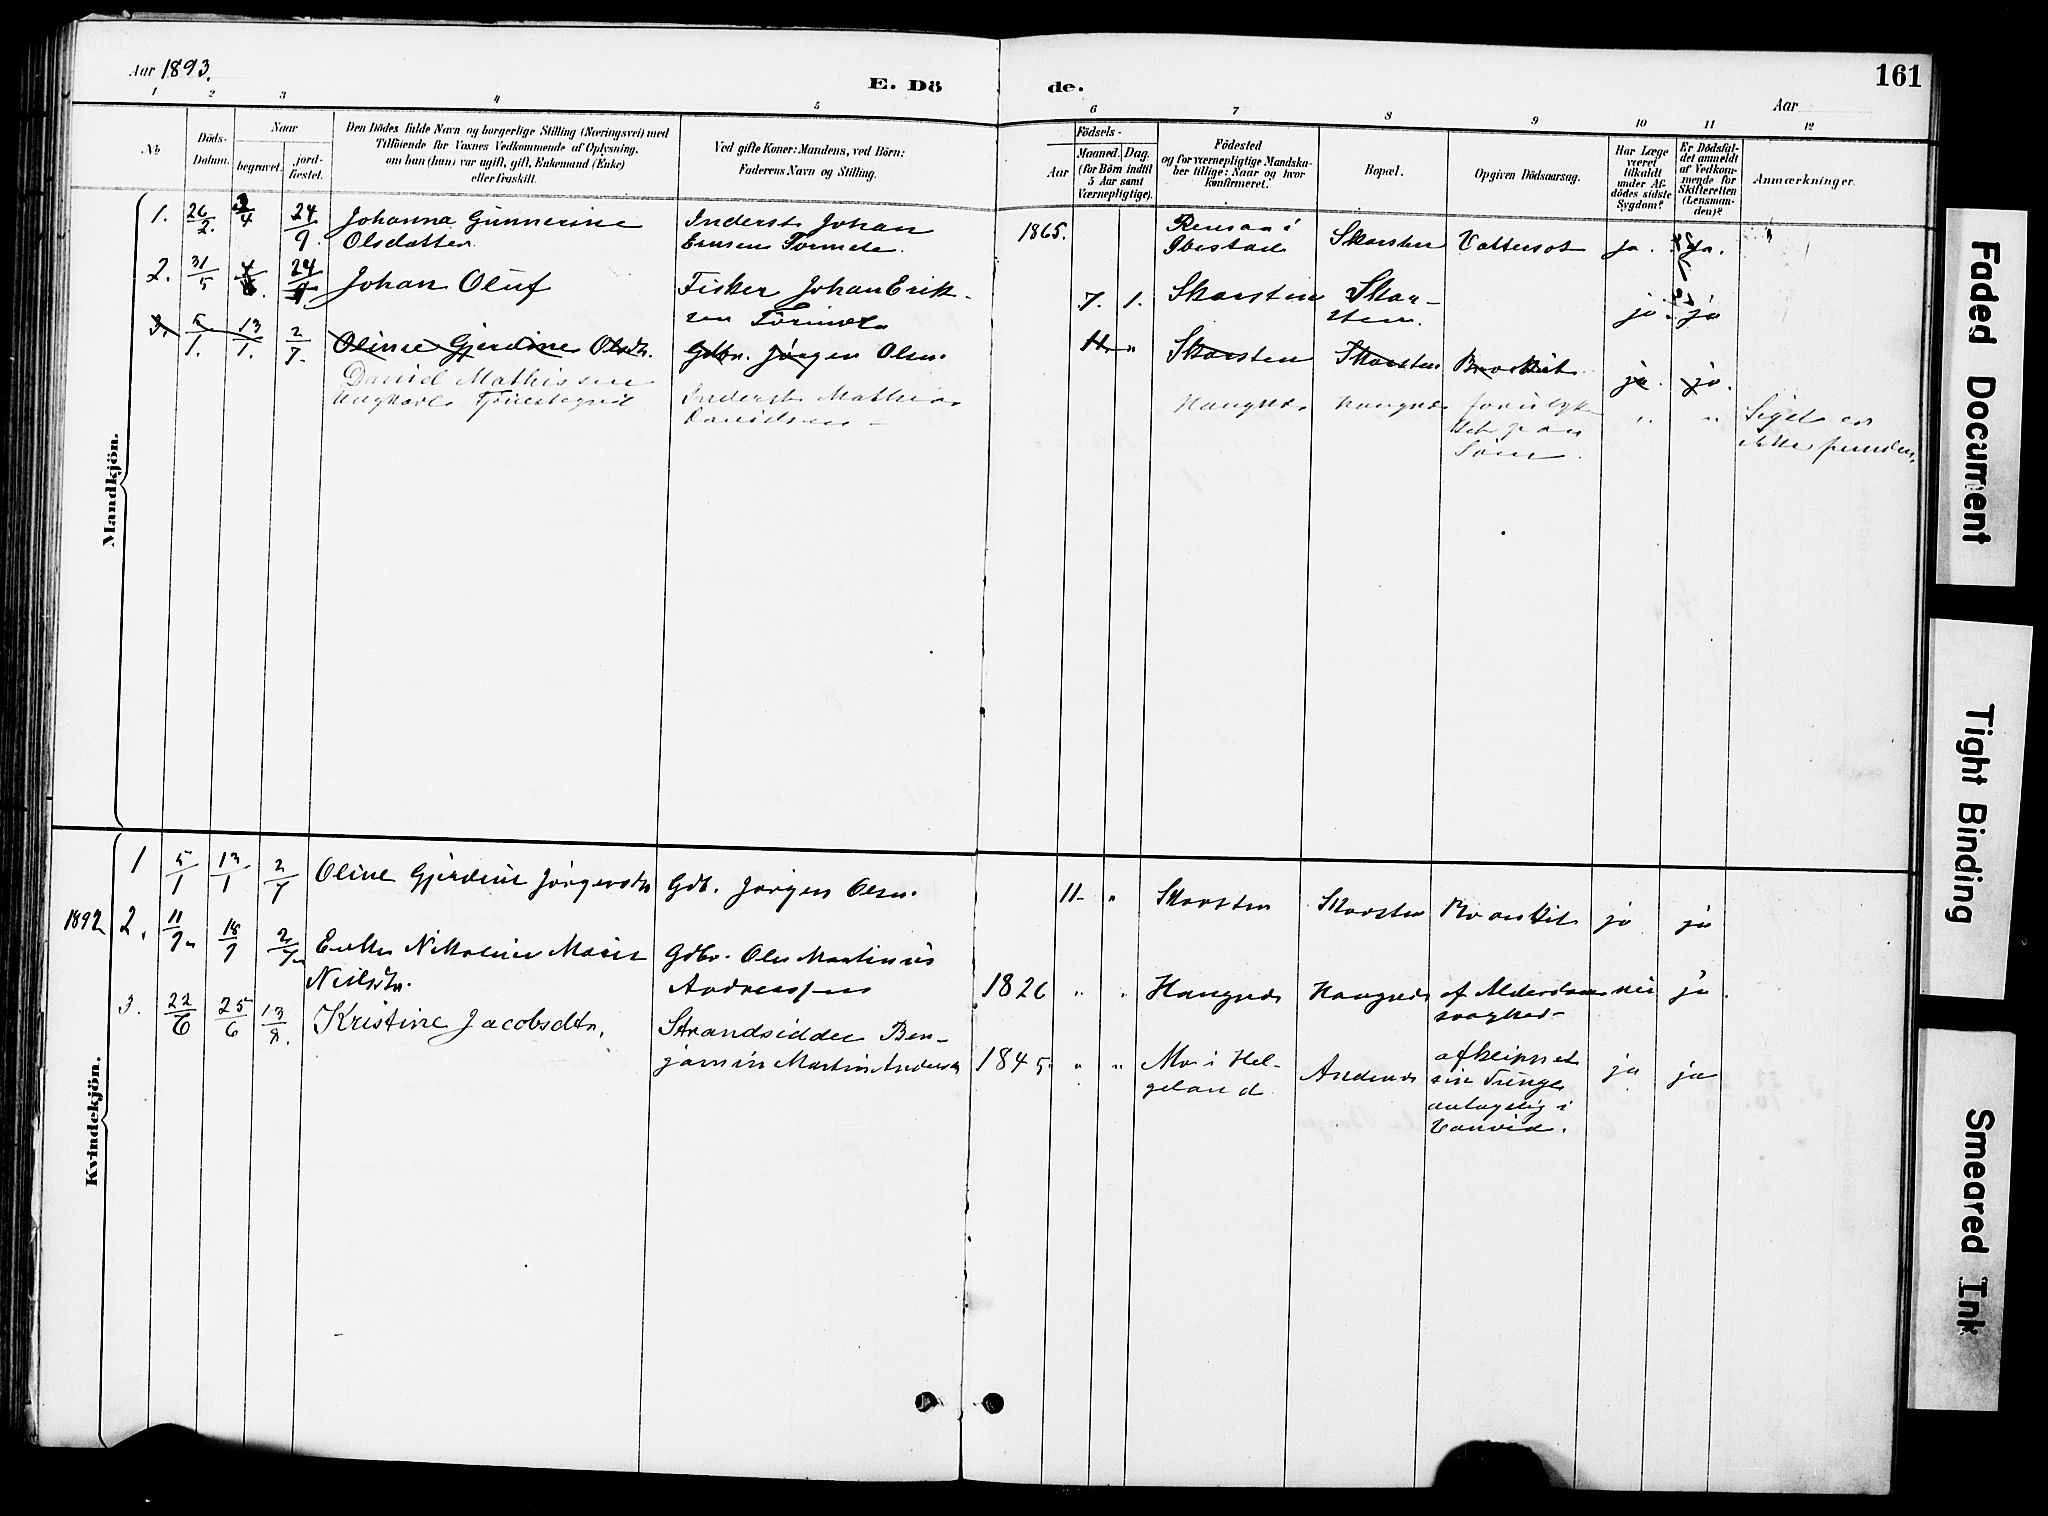 Aar 1893.
E. Dö de.
Aar
161
1 2 3 4 5 6 7 8 9 10 11 12
No
Döds-Datum.
Naar
begravet. jord-fæstet.
Den Dödes fulde Navn og borgerlige Stilling (Næringsvei) med
Tilföiende for Voxnes Vedkommende af Oplysning,
om han (hun) var ugift, gift, Enkemand (Enke)
eller fraskilt.
Ved gifte Koner: Mandens, ved Börn:
Faderens Navn og Stilling.
Födsels-
Aar
Maaned. Dag.
(for Börn indtil
5 Aar samt
Værnepligtige).
Födested
og for værnepligtige Mandska-
ber tillige: Naar og hvor
konfirmeret.
Bopæl.
Opgiven Dödsaarsag.
Har Læge
været
tilkaldt
under Af-
dödes sidste
Sygdom?
Er Dödsfal-
det anmeldt
af Vedkom-
mende for
Skifteretten
(Lensman-
den)?
Anmærkninger.
Mandkjön.
1. 26/2 2/4 24/9. Johanna Gunnerine
Olsdatter
Inderst Johan
1865.
Rensaa i
Ibestad
Skarsten
Vattersot
ja. ja.
2. 31/5 24/9 Johan Oluf
Fisker Johan Erik-
sen
7. 1. Skarsten
Skar-
sten.
ja. ja
3. 5/1. 13/1. 2/7. Oline Gjerdine Olsdtr.
Gdbr. Jørgen Olsen.
11. " Skarsten Skarsten ja. ja.
Daniel Mathissen
Ungkarl,
Inderst Mathias
Davidsen
Haugnes Haugnes forulyk-
ket paa
Søen.
" "
Liget er
ikke funden.
Kvindekjön.
1 5/1 13/1 2/7 Oline Gjerdine Jørgensdtr
Gdb. Jørgen Olsen.
11 " Skarsten Skarsten ja ja
1892 2. 11/7 18/7 2/7 Enke Nikoline Marie
Nielsdtr.
Gdbr. Ole Martinus
Andreassen
1826 " " Haugnes Haugnes af Alderdoms
svaghed
nei ja.
3. 22/6 25/6 13/8. Kristine Jacobsdtr.
Strandsidder Ben-
jamin Martin Anders
1845. " " Mo i Hel-
geland
Andenes
afklippet
sin Tunge
antagelig i
Vanvid.
ja ja
Faded Document
Tight Binding
Smeared Ink